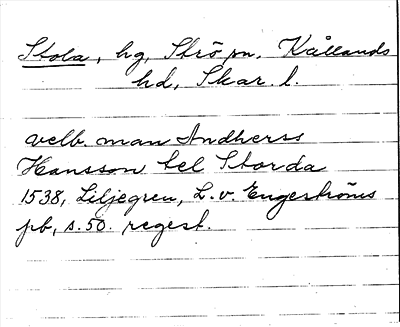 Stola, hg, Strö sn. Kållands
hd, Skar. l.
velb. man Andherss
Hansson tel Storda
1538, Liljegren, L. v. Engeströms
pb, s. 50. regest.